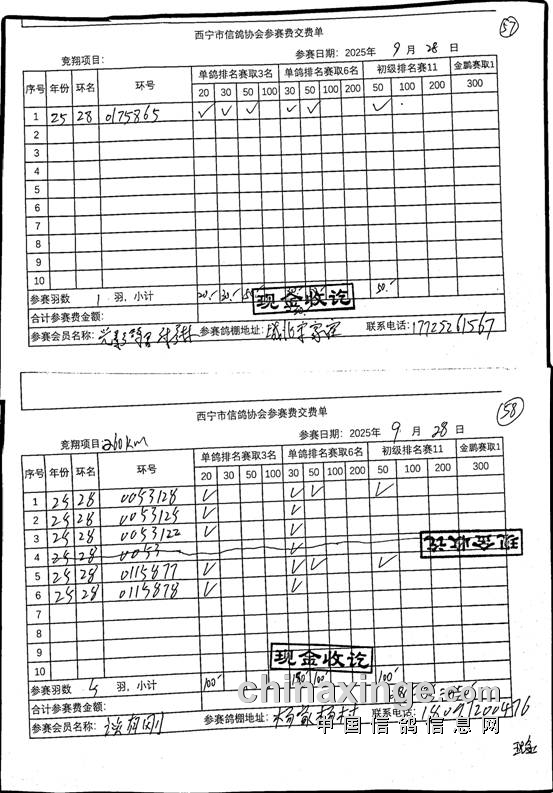 57
西宁市信鸽协会参赛费交费单
竞翔项目: 参赛日期: 2025年 9 月 28 日
序号 年份 环名 环号 单鸽排名赛取3名 单鸽排名赛取6名 初级排名赛11 金鹏赛取1
20 30 50 100 30 50 100 200 50 100 200 300
1 25 28 0175865 ✓ ✓ ✓ ✓ ✓ ✓
2
3
4
5
6
7
8
9
10
参赛羽数 1 羽, 小计 20.- 30.- 50.- 50.-
现金收讫
合计参赛费金额:
参赛会员名称: 参赛鸽棚地址: 联系电话: 17725261567
58
西宁市信鸽协会参赛费交费单
竞翔项目 260km 参赛日期: 2025年 9 月 28 日
序号 年份 环名 环号 单鸽排名赛取3名 单鸽排名赛取6名 初级排名赛11 金鹏赛取1
20 30 50 100 30 50 100 200 50 100 200 300
1 25 28 0053128 ✓ ✓ ✓ ✓
2 25 28 0053125 ✓ ✓
3 25 28 0053122 ✓ ✓
4 25 28 0053 ✓
现金收讫
5 25 28 0115877 ✓ ✓ ✓ ✓
6 25 28 0115878 ✓ ✓
7
8
9
10
现金收讫
参赛羽数 5 羽, 小计 100- 150- 100- 100-
合计参赛费金额:
chinaxinge.com
参赛会员名称: 参赛鸽棚地址: 联系电话:
中国信鸽信息网
现金